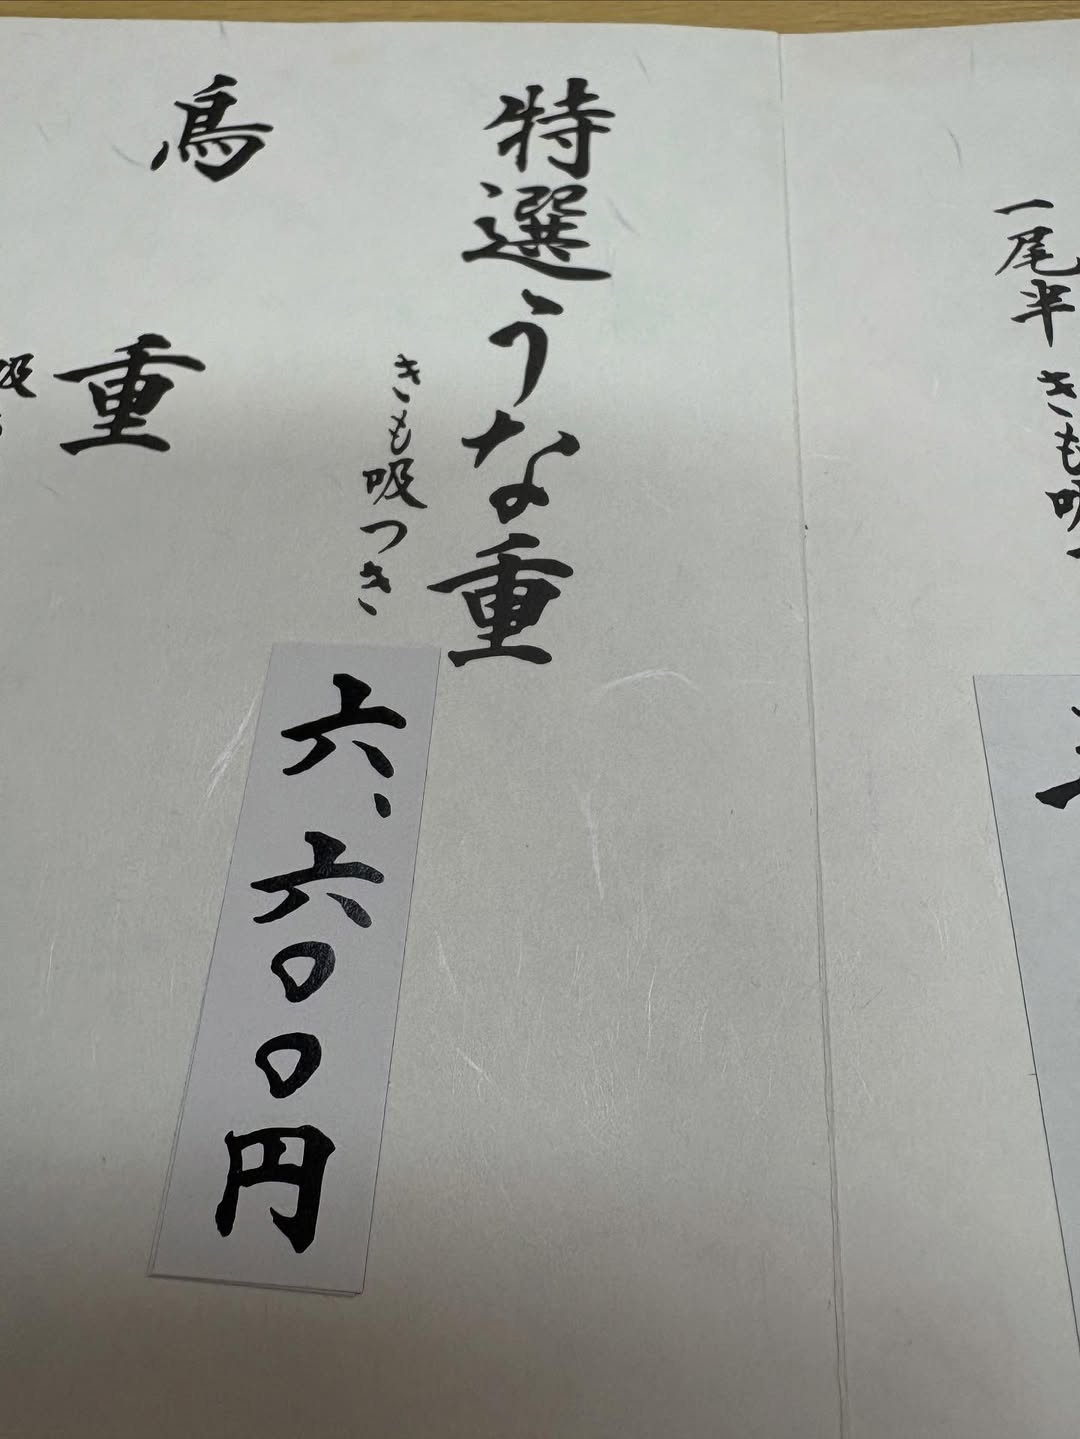 一尾半 きも吸
特選うな重
きも吸つき
六、六〇〇円
鳥重
吸